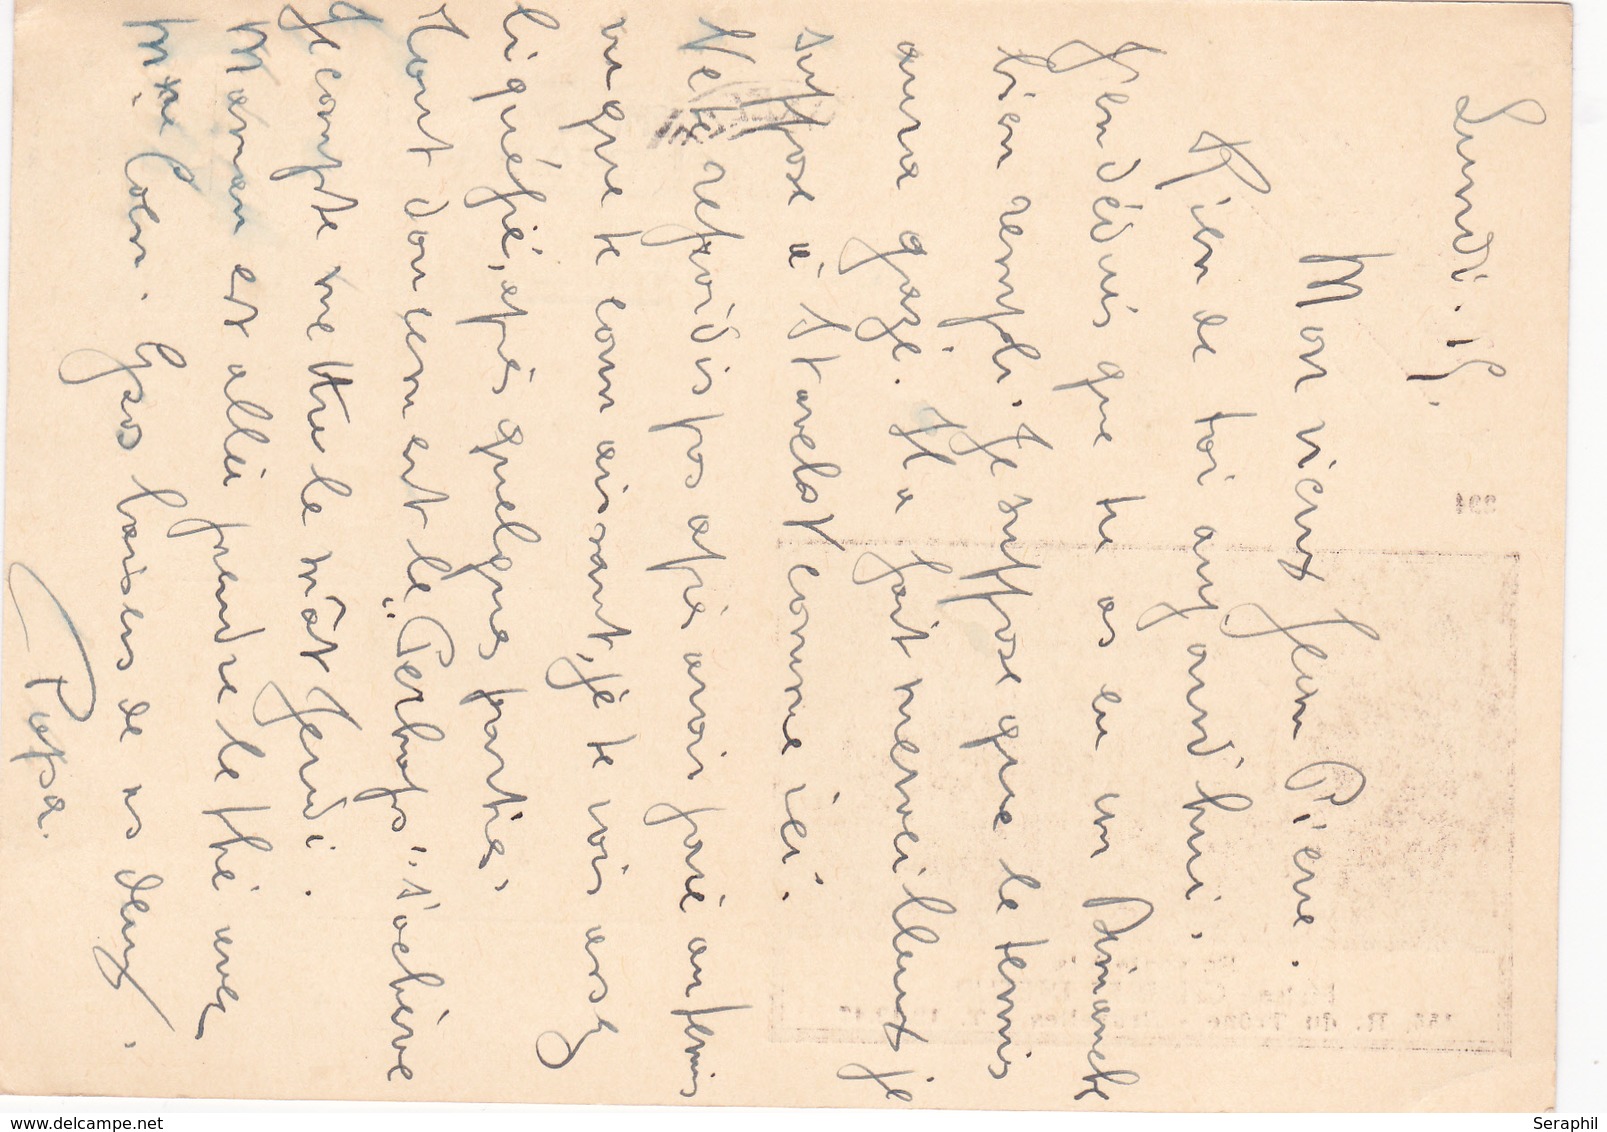 Lundi. 15.
Mon vieux Jean Pierre.
Rien de toi aujourd'hui.
J'en déduis que tu as eu un Dimanche
bien rempli. Je suppose que le tennis
aura gazé. Il a fait merveilleux je
suppose à Stavelot comme ici.
Ne te refroidis pas après avoir joué au tennis
vu que te connaissant, je te vois assez
liquéfié, après quelques parties.
Tout doucement le "Perhaps" s'achève
Je compte mettre le mât Jeudi.
Maman est allée prendre le thé avec
Mme Colen. Gros baisers de ns deux.
Papa.
www.delcampe.net
Seraphil